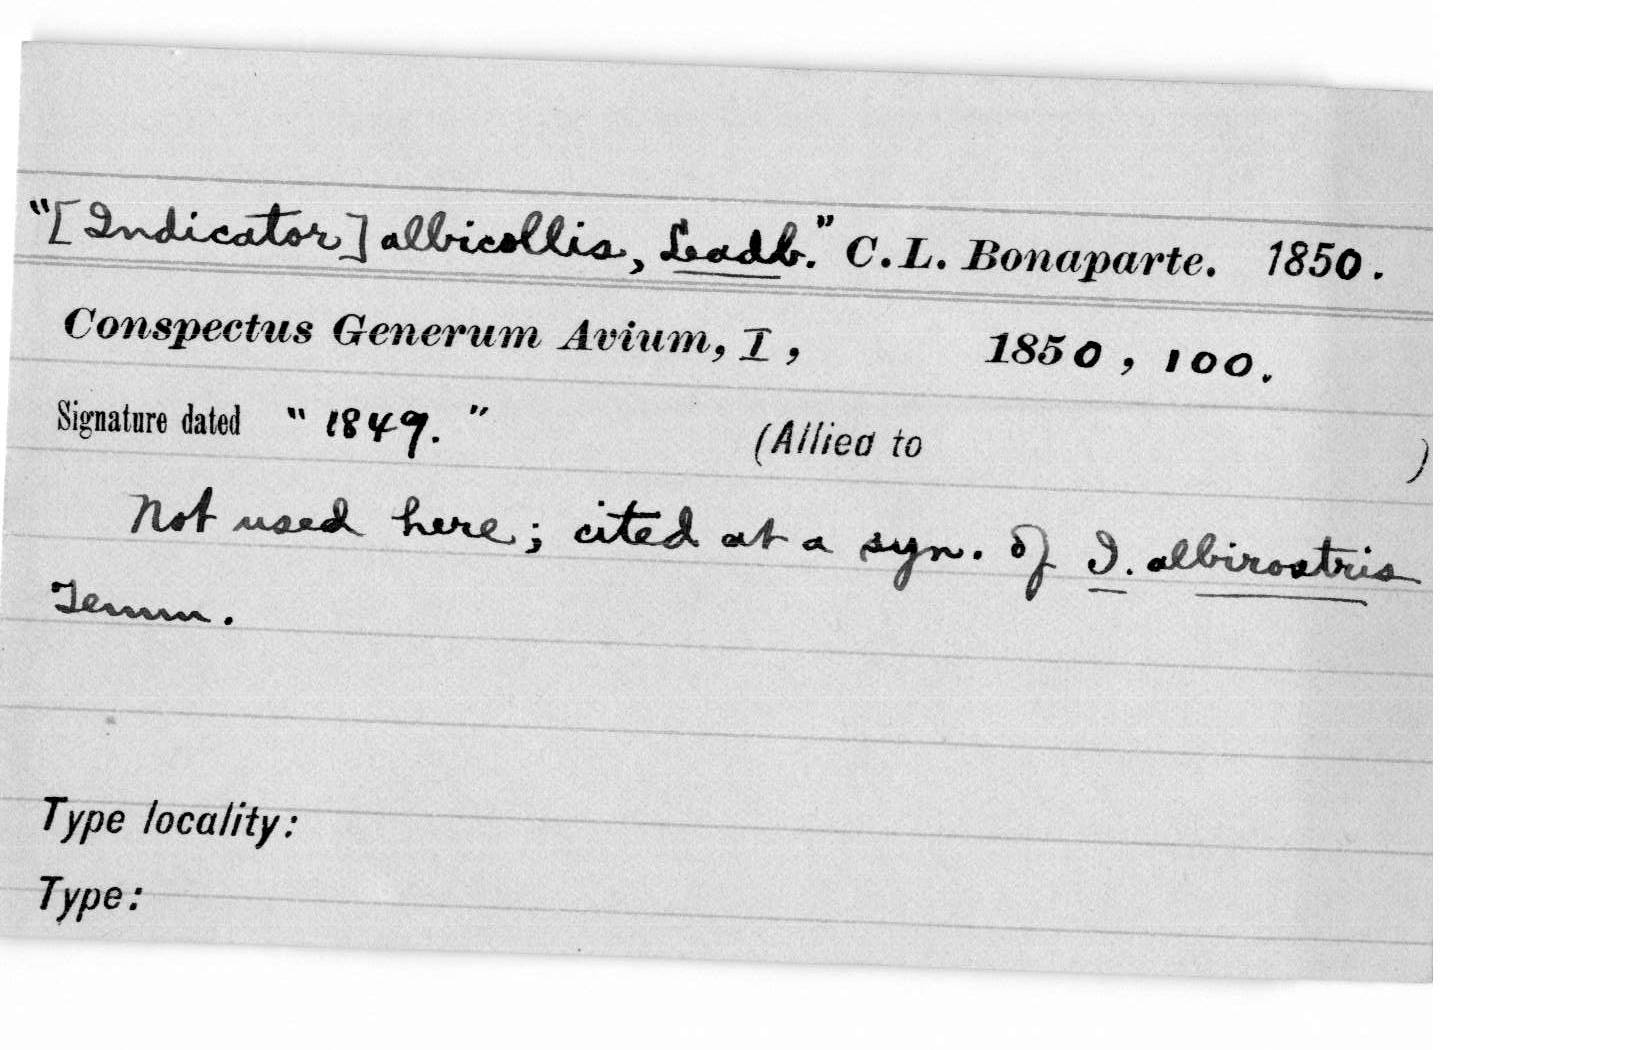 "[Indicator] albicollis, Leadb." C. L. Bonaparte. 1850.
Conspectus Generum Avium, I, 1850, 100.
Signature dated "1849." (Allied to )
Not used here; cited at a syn. of I. albirostris
Temm.
Type locality:
Type: